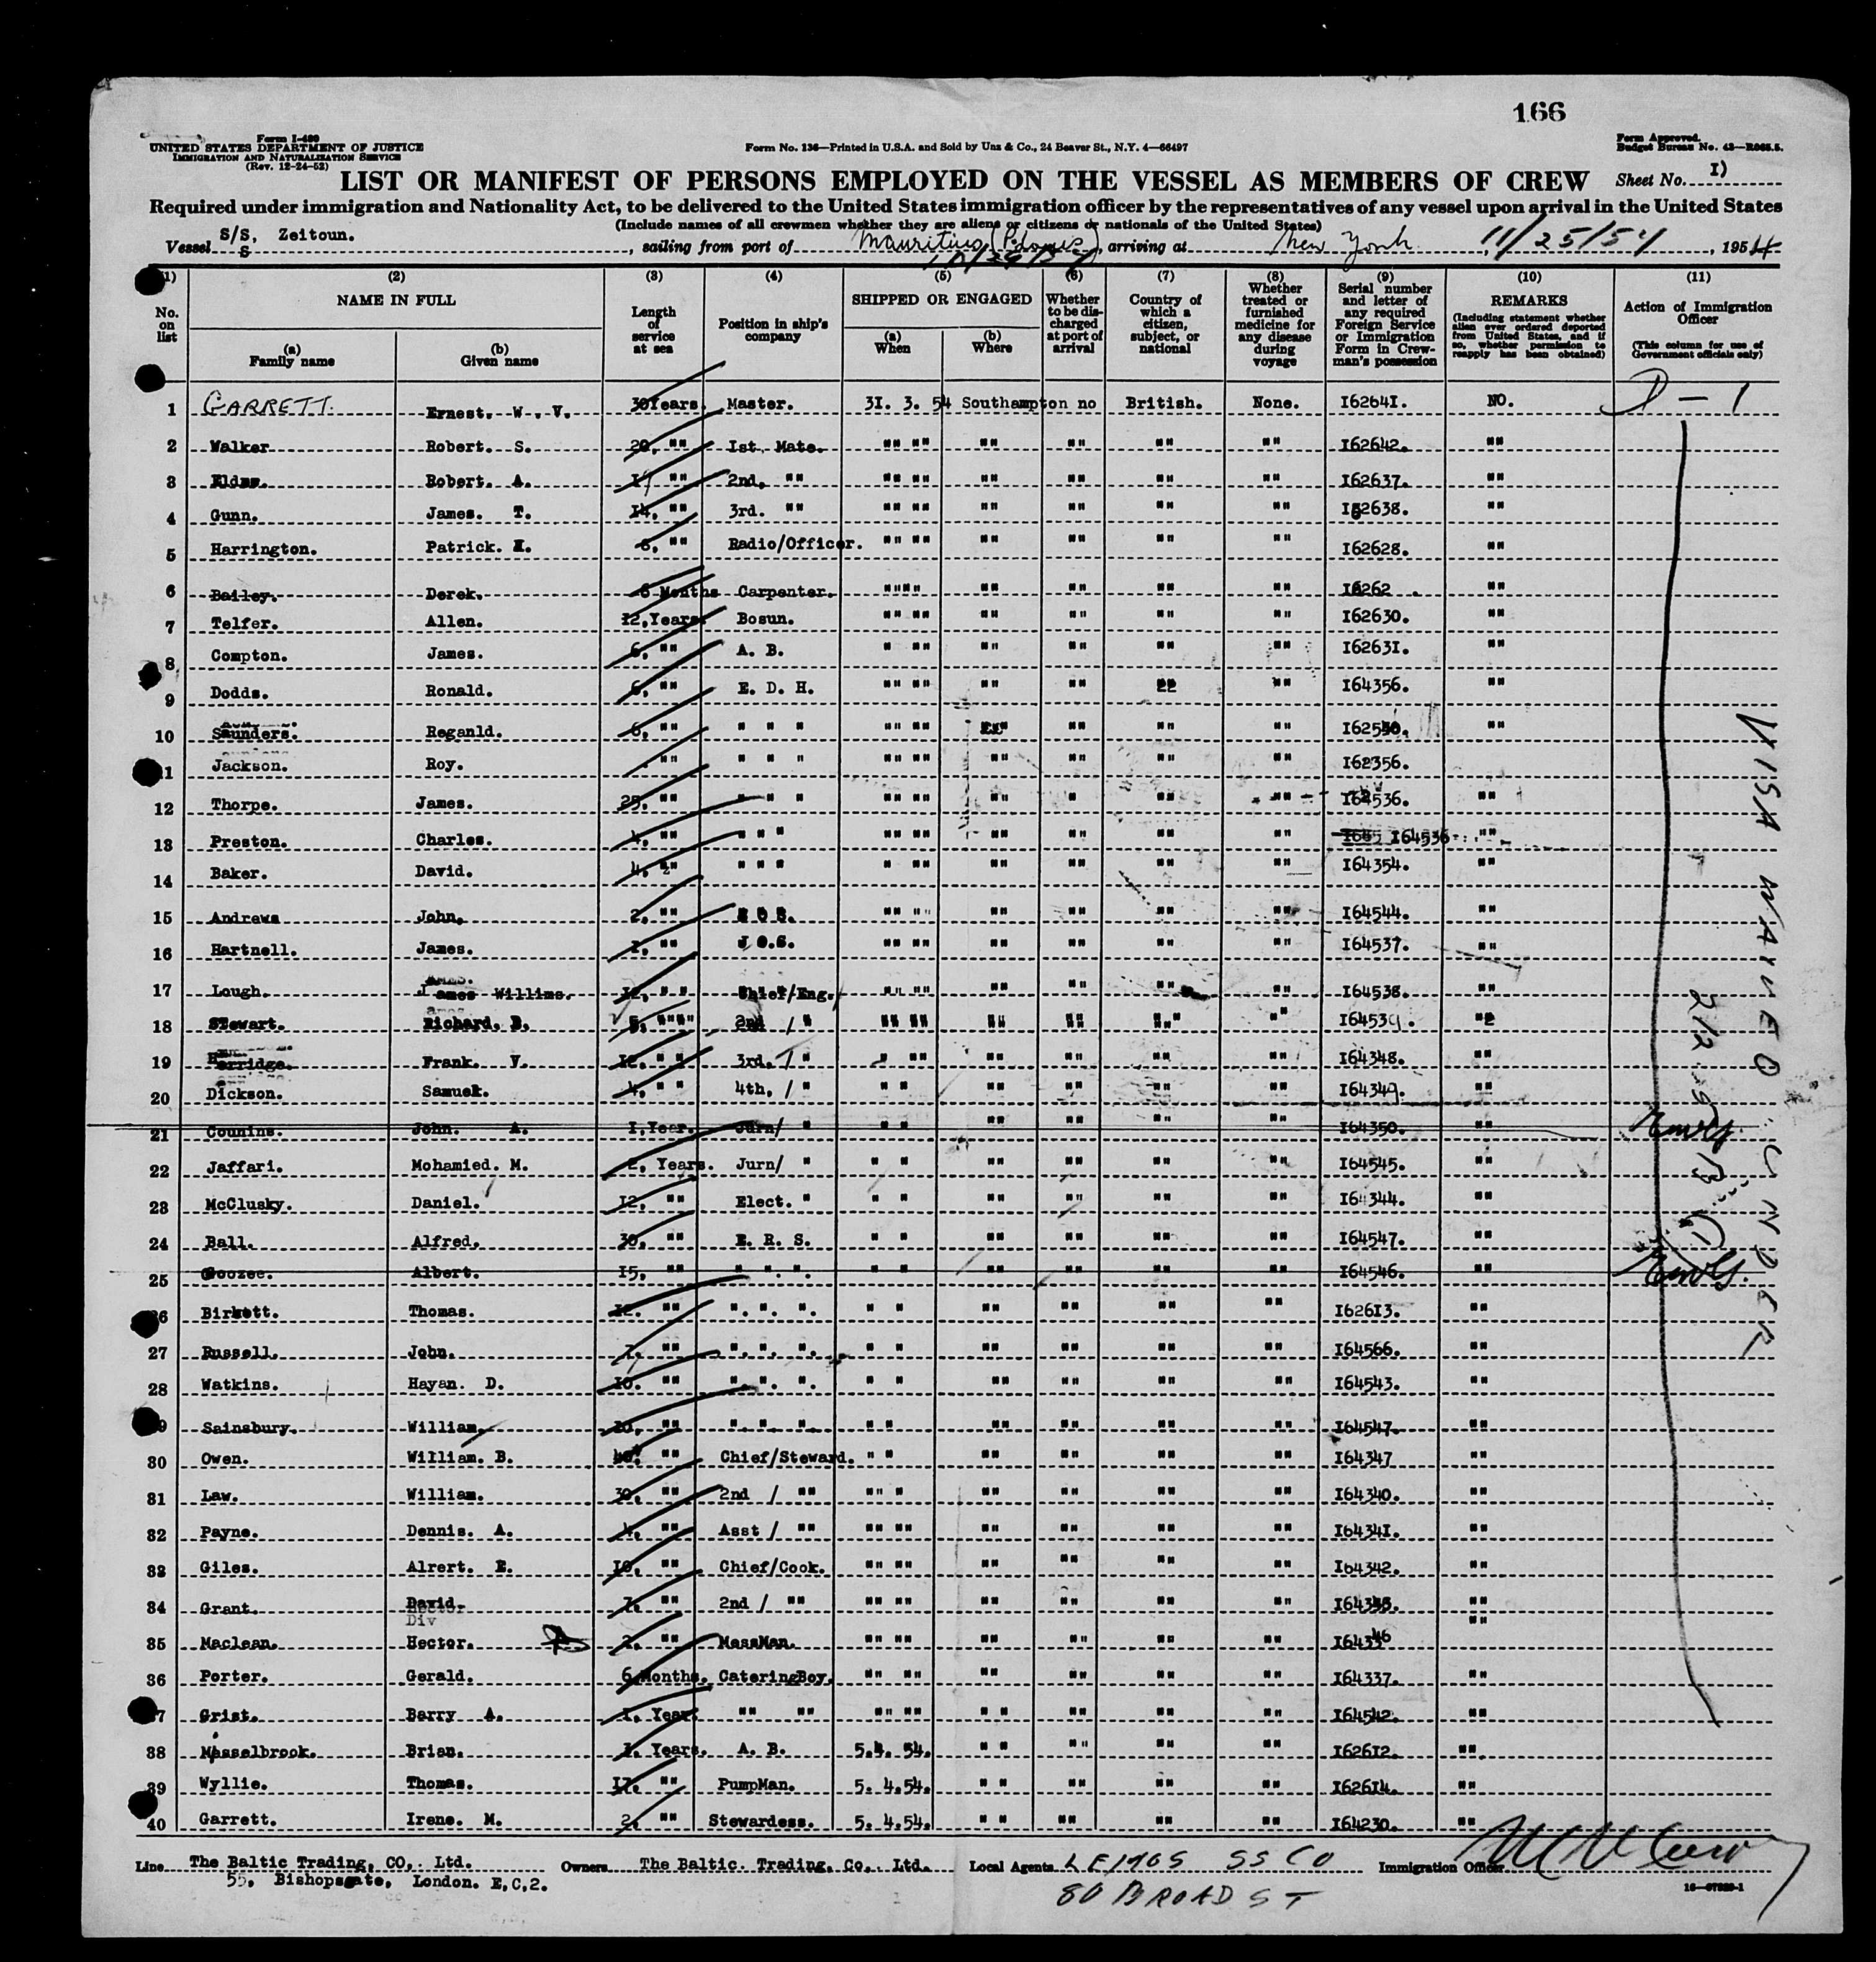 166
Form I-489
UNITED STATES DEPARTMENT OF JUSTICE
IMMIGRATION AND NATURALIZATION SERVICE
(Rev. 12-24-52)
Form No. 136—Printed in U.S.A. and Sold by Unz & Co., 24 Beaver St., N.Y. 4—66497
Form Approved.
Budget Bureau No. 43—R065.5.
LIST OR MANIFEST OF PERSONS EMPLOYED ON THE VESSEL AS MEMBERS OF CREW
Sheet No. I)
Required under immigration and Nationality Act, to be delivered to the United States immigration officer by the representatives of any vessel upon arrival in the United States
(Include names of all crewmen whether they are aliens or citizens or nationals of the United States)
Vessel S/S. Zeitoun. , sailing from port of Mauritius , arriving at New York 11/25/54 , 1954
(1) (2) (3) (4) (5) (6) (7) (8) (9) (10) (11)
No. on list
NAME IN FULL
(a) Family name
(b) Given name
Length of service at sea
Position in ship's company
SHIPPED OR ENGAGED
(a) When
(b) Where
Whether to be discharged at port of arrival
Country of which a citizen, subject, or national
Whether treated or furnished medicine for any disease during voyage
Serial number and letter of any required Foreign Service or Immigration Form in Crewman's possession
REMARKS
(Including statement whether alien ever ordered deported from United States, and if so, whether permission to reapply has been obtained)
Action of Immigration Officer
(This column for use of Government officials only)
1 GARRETT. Ernest. W. V. 30Years. Master. 3I. 3. 54 Southampton no British. None. I6264I. NO. D - 1
2 Walker Robert. S. 20. "" Ist. Mate. "" "" "" "" "" "" I62642. ""
3 Robert. A. "" 2nd. "" "" "" "" "" "" "" I62637. ""
4 Gunn. James. T. I4. "" 3rd. "" "" "" "" "" "" "" I62638. ""
5 Harrington. Patrick. 6. "" Radio/Officer. "" "" "" "" "" "" I62628. ""
6 Bailey. Derek. 6 Months Carpenter. """" "" "" "" "" I6262 . ""
7 Telfer. Allen. I2.Years. Bosun. "" "" "" "" "" "" I62630. ""
8 Compton. James. 6. "" A. B. " "" "" "" "" "" I6263I. ""
9 Dodds. Ronald. 6. "" E. D. H. "" "" "" "" 22 "" I64356. ""
10 Saunders. Reganld. 6. "" " " " "" "" "" "" "" "" ""
11 Jackson. Roy. "" " " " "" "" "" "" "" "" I62356.
12 Thorpe. James. 25. "" " " " "" "" "" " "" "" I64536. ""
13 Preston. Charles. 4. "" " " " "" "" "" "" "" "" I64536 ""
14 Baker. David. 4. "" " " " " "" "" "" "" "" I64354. ""
15 Andrews John. 2. "" "" "" "" "" "" "" I64544. ""
16 Hartnell. James. I. "" J O.S. "" "" "" "" "" "" I64537. ""
17 Lough. James Willims. I2. " " Chief/Eng. "" "" "" "" "" "" I64538. ""
18 Stewart. Richard. B. 5. """" 2nd / " "" "" "" "" "" "" I64539. "2
19 Herridge. Frank. V. I2. " " 3rd. / " " "" "" "" "" "" I64348. ""
20 Dickson. Samuek. 4. " " 4th. / " " " "" "" "" "" I64349. ""
21 Counins. John. A. I.Year. Jurn/ " " " "" "" "" "" I64350. ""
22 Jaffari. Mohamied. M. 2. Years. Jurn/ " " " "" "" "" "" I64545. ""
23 McClusky. Daniel. I2. "" Elect. " " " "" "" "" "" I64344. ""
24 Ball. Alfred. 30. "" E. R. S. " " "" "" "" "" I64547. ""
25 Goozee. Albert. I5. "" " . " . " . " " "" "" "" "" I64546. ""
26 Birkett. Thomas. I2. "" " . " . " . " " "" "" "" "" I626I3. ""
27 Russell. John. 7. "" " . " . " . " " "" "" "" "" I64566. ""
28 Watkins. Hayan. D. I0. "" " . " . " . " " "" "" "" "" I64543. ""
29 Sainsbury. William. I0. "" " . " . " . " " "" "" "" "" I64547. ""
30 Owen. William. B. 40. "" Chief/Steward. " " "" "" "" "" I64347 ""
31 Law. William. 30. "" 2nd / "" "" " "" "" "" "" I64340. ""
32 Payne. Dennis. A. 4. "" Asst / "" "" "" "" "" "" "" I6434I. ""
33 Giles. Alrert. E. I0. "" Chief/Cook. "" "" "" "" "" "" I64342. ""
34 Grant. David. 7. "" 2nd / "" "" "" "" "" "" "" ""
Div
35 Maclean. Hector. 2. "" MessMan. "" "" "" "" "" "" ""
36 Porter. Gerald. 6 Months. CateringBoy. "" "" "" "" "" "" I64337. ""
37 Grist. Barry A. I. Year. "" "" "" "" "" "" "" "" I64542. ""
38 Masselbrook. Brian. Years. A. B. 5.4. 54. " " "" "" "" I626I2. ""
39 Wyllie. Thomas. I7. "" PumpMan. 5. 4.54. " " "" "" "" I626I4. ""
40 Garrett. Irene. M. 2. "" Stewardess. 5. 4.54. " " "" "" "" I64230. ""
VISA WAIVED UNDER
212
Line The Baltic Trading. CO,. Ltd. Owners The Baltic. Trading. Co,. Ltd. Local Agents LEMOS SS CO Immigration Officer
55, Bishopsgate, London. E,C,2. 80 BROAD ST